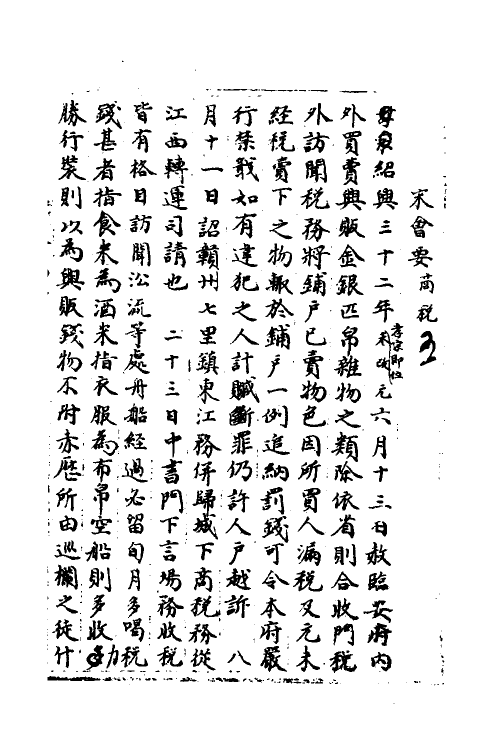 宋會要 商稅 五
孝宗紹興三十二年孝宗即位未改元六月十三日赦臨安府內
外買賣興販金銀匹帛雜物之類除依省則合收門稅
外訪聞稅務將鋪戶已賣物色因所買人漏稅及元未
經稅賣下之物輒於鋪戶一例追納罰錢可令本府嚴
行禁戢如有違犯之人計贓斷罪仍許人戶越訴 八
月十一日詔贛州七里鎮東江務併歸城下商稅務從
江西轉運司請也 二十三日中書門下言場務收稅
皆有格日訪聞沿流等處舟船經過必留旬月多喝稅
錢甚者指食米為酒米指衣服為布帛空船則多收力
勝行裝則以為興販錢物不附赤歷所由巡欄之徒什